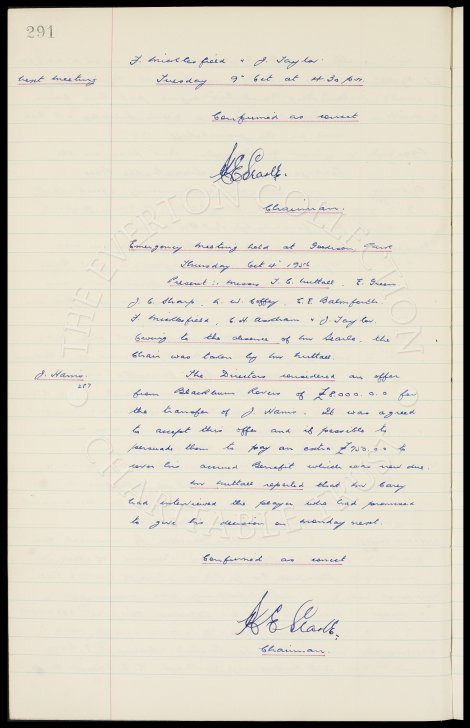 291
F. Micklesfield & J. Taylor.
next meeting Tuesday 9th Oct at 4.30 p.m.
Confirmed as correct
Chairman.
Emergency meeting held at Goodison Park
Thursday Oct 4th 1956
Present:- Messrs T. C. Nuttall, E. Green
J. C. Sharp, A. W. Coffey, C. E. Balmforth
F. Micklesfield, E. H. Askham & J. Taylor.
Owing to the absence of Mr Searle, the
Chair was taken by Mr Nuttall.
J. Harris. The Directors considered an offer
287
from Blackburn Rovers of £8000.0.0 for
the transfer of J. Harris. It was agreed
to accept this offer and if possible to
persuade them to pay an extra £750.0.0 to
cover his accrued Benefit which was now due.
Mr Nuttall reported that Mr Carey
had interviewed the player who had promised
to give his decision on Monday next.
Confirmed as correct
Chairman.
THE EVERTON COLLECTION
CHARITABLE TRUST